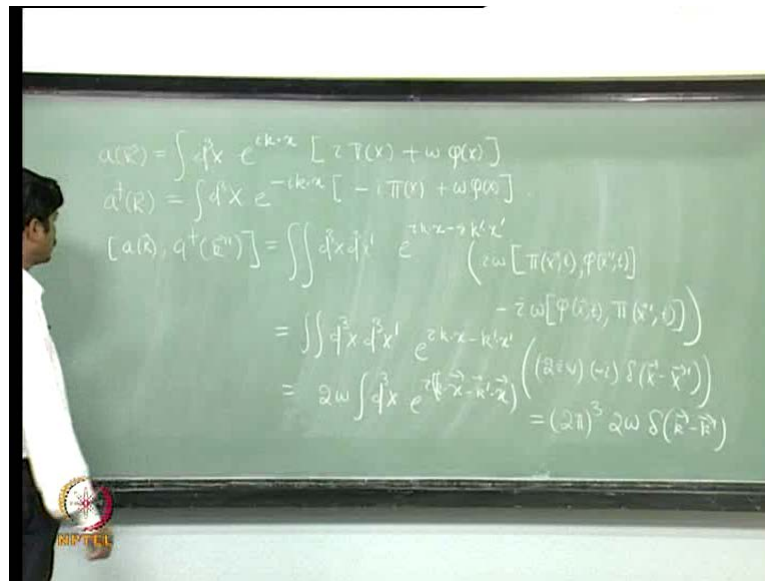 a(k⃗) = ∫ d³x e^{ik·x} [ i π(x) + ω φ(x) ]
a†(k⃗) = ∫ d³x e^{-ik·x} [ - i π(x) + ω φ(x) ] .
[ a(k⃗), a†(k⃗') ] = ∫∫ d³x d³x' e^{ik·x - ik'·x'} ( iω [ π(x⃗,t), φ(x⃗',t) ]
- iω [ φ(x⃗,t), π(x⃗',t) ] )
= ∫∫ d³x d³x' e^{ik·x - k'·x'} ( (2iω) (-i) δ(x⃗ - x⃗') )
= 2ω ∫ d³x e^{i(k⃗·x⃗ - k⃗'·x⃗)} = (2π)³ 2ω δ(k⃗ - k⃗')
NPTEL